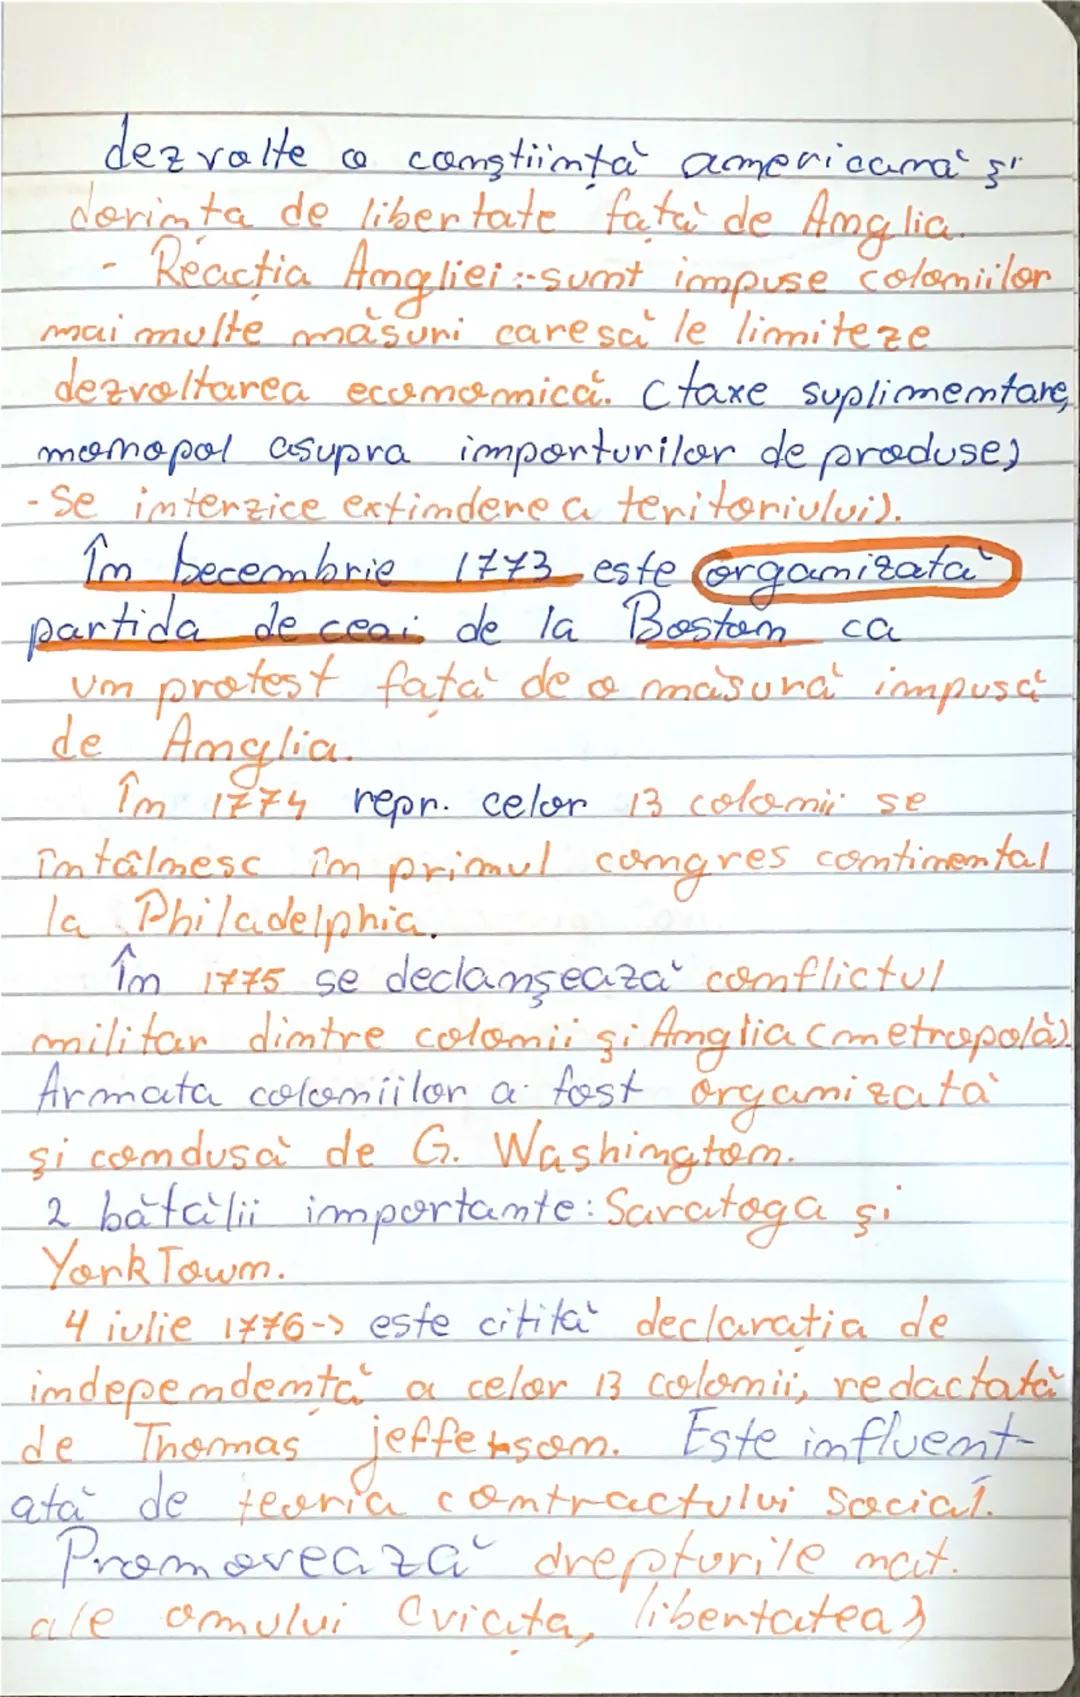 dezvolte o conștiință americană și
dorința de libertate față de Anglia.
- Reacția Angliei:-sunt impuse coloniilor
mai multe măsuri care să le limiteze
dezvoltarea economică. (taxe suplimentare,
monopol asupra importurilor de produse)
- Se interzice extinderea teritoriului).
În Decembrie 1773 este organizată
partida de ceai de la Boston ca
un protest față de o măsură impusă
de Anglia.
În 1774 repr. celor 13 colonii se
întâlnesc în primul congres continental
la Philadelphia.
În 1775 se declanșează conflictul
militar dintre colonii și Anglia (metropolă).
Armata coloniilor a fost organizată
și condusă de G. Washington.
2 bătălii importante: Saratoga și
YorkTown.
4 iulie 1776-> este citită declarația de
independență a celor 13 colonii, redactată
de Thomas jefferson. Este influent-
ată de teoria contractului social.
Promovează drepturile nat.
ale omului (viața, libertatea)